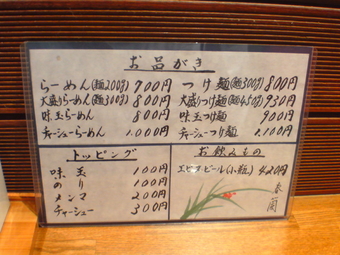 お品がき
らーめん(麺200g) 700円
大盛りらーめん(麺300g) 800円
味玉らーめん 800円
チャーシューらーめん 1.000円
つけ麺(麺300g) 800円
大盛つけ麺(麺450g) 930円
味玉つけ麺 900円
チャーシューつけ麺 1.100円
トッピング
味玉 100円
のり 100円
メンマ 200円
チャーシュー 300円
お飲みもの
エビスビール(小瓶) 420円
春蘭